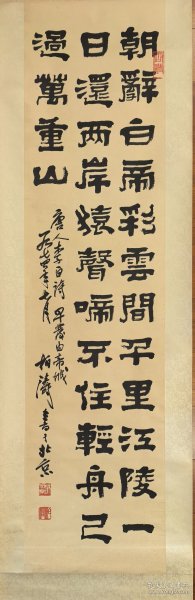 朝辭白帝彩雲間千里江陵一
日還兩岸猿聲啼不住輕舟已
過萬重山
唐人李白詩早發白帝城
一九七四年七月 柯濤書之北京